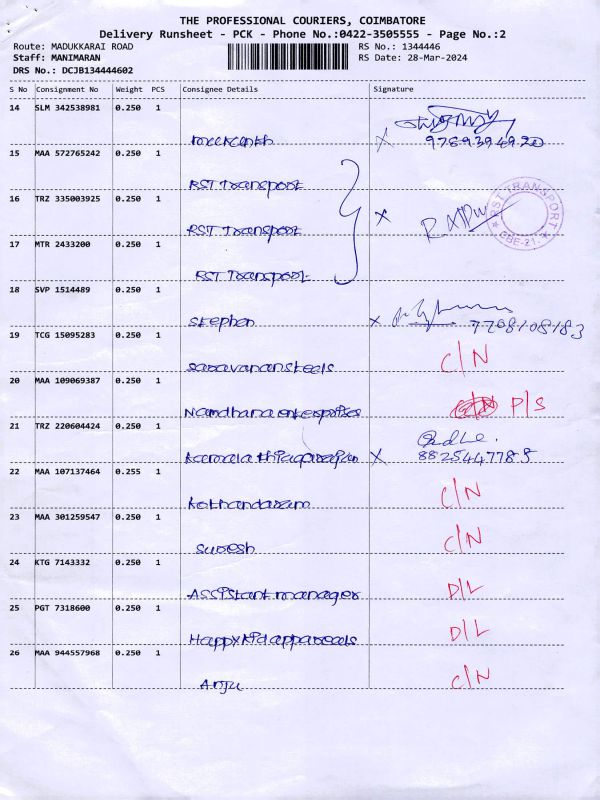 THE PROFESSIONAL COURIERS, COIMBATORE
Delivery Runsheet - PCK - Phone No.:0422-3505555 - Page No.:2
Route: MADUKKARAI ROAD RS No.: 1344446
Staff: MANIMARAN RS Date: 28-Mar-2024
DRS No.: DCJB134444602
S No Consignment No Weight PCS Consignee Details Signature
14 SLM 342538981 0.250 1
X 9789394920
15 MAA 572765242 0.250 1
RST Transport
16 TRZ 335003925 1 0.250 1
RST Transport X
RST TRANSPORT
CBE-21.
17 MTR 2433200 0.250 1
RST Transport
18 SVP 1514489 0.250 1
Stephen X 7708108183
19 TCG 15095283 0.250 1
Saravanan steels C/N
20 MAA 109069387 0.250 1
Namdhana enterprises P/S
21 TRZ 220604424 0.250 1
Kamala thiagarajan X 8825447785
22 MAA 107137464 0.255 1
Kothandaram C/N
23 MAA 301259547 0.250 1
Suresh C/N
24 KTG 7143332 0.250 1
Assistant manager D/L
25 PGT 7318600 0.250 1
Happy kid appareals D/L
26 MAA 944557968 0.250 1
Anju C/N